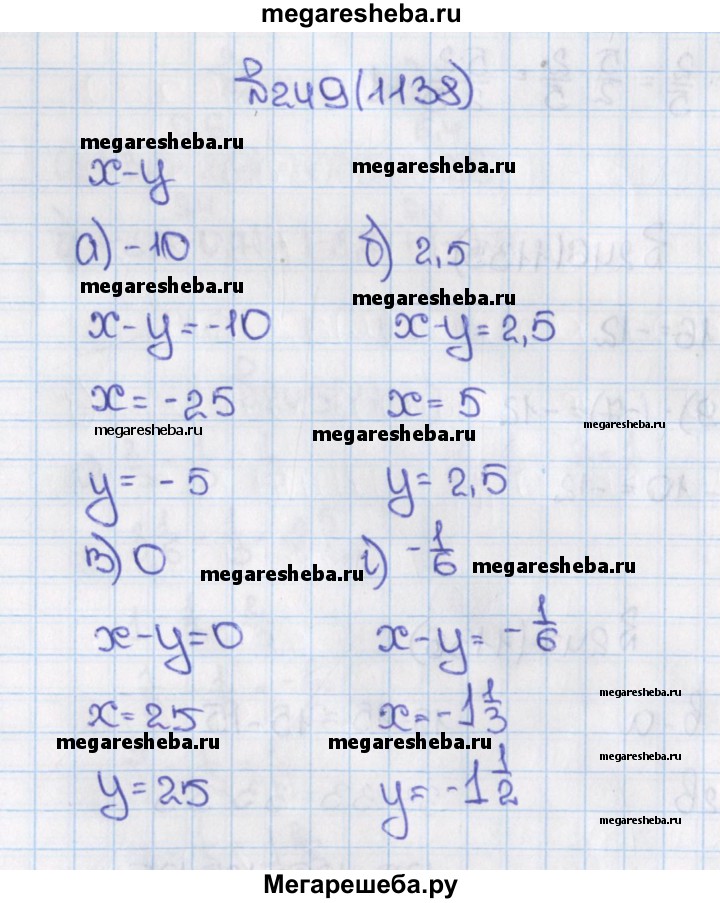 megaresheba.ru
№249(1138)
megaresheba.ru
megaresheba.ru
x-y
а) -10 б) 2,5
megaresheba.ru
megaresheba.ru
x-y=-10 x-y=2,5
x=-25 x=5
megaresheba.ru
megaresheba.ru
megaresheba.ru
y=-5 y=2,5
в) 0 г) -1/6
megaresheba.ru
megaresheba.ru
x-y=0 x-y=-1/6
megaresheba.ru
x=25 x=-1 1/3
megaresheba.ru
megaresheba.ru
megaresheba.ru
y=25 y=-1 1/2
megaresheba.ru
Мегарешеба.ру